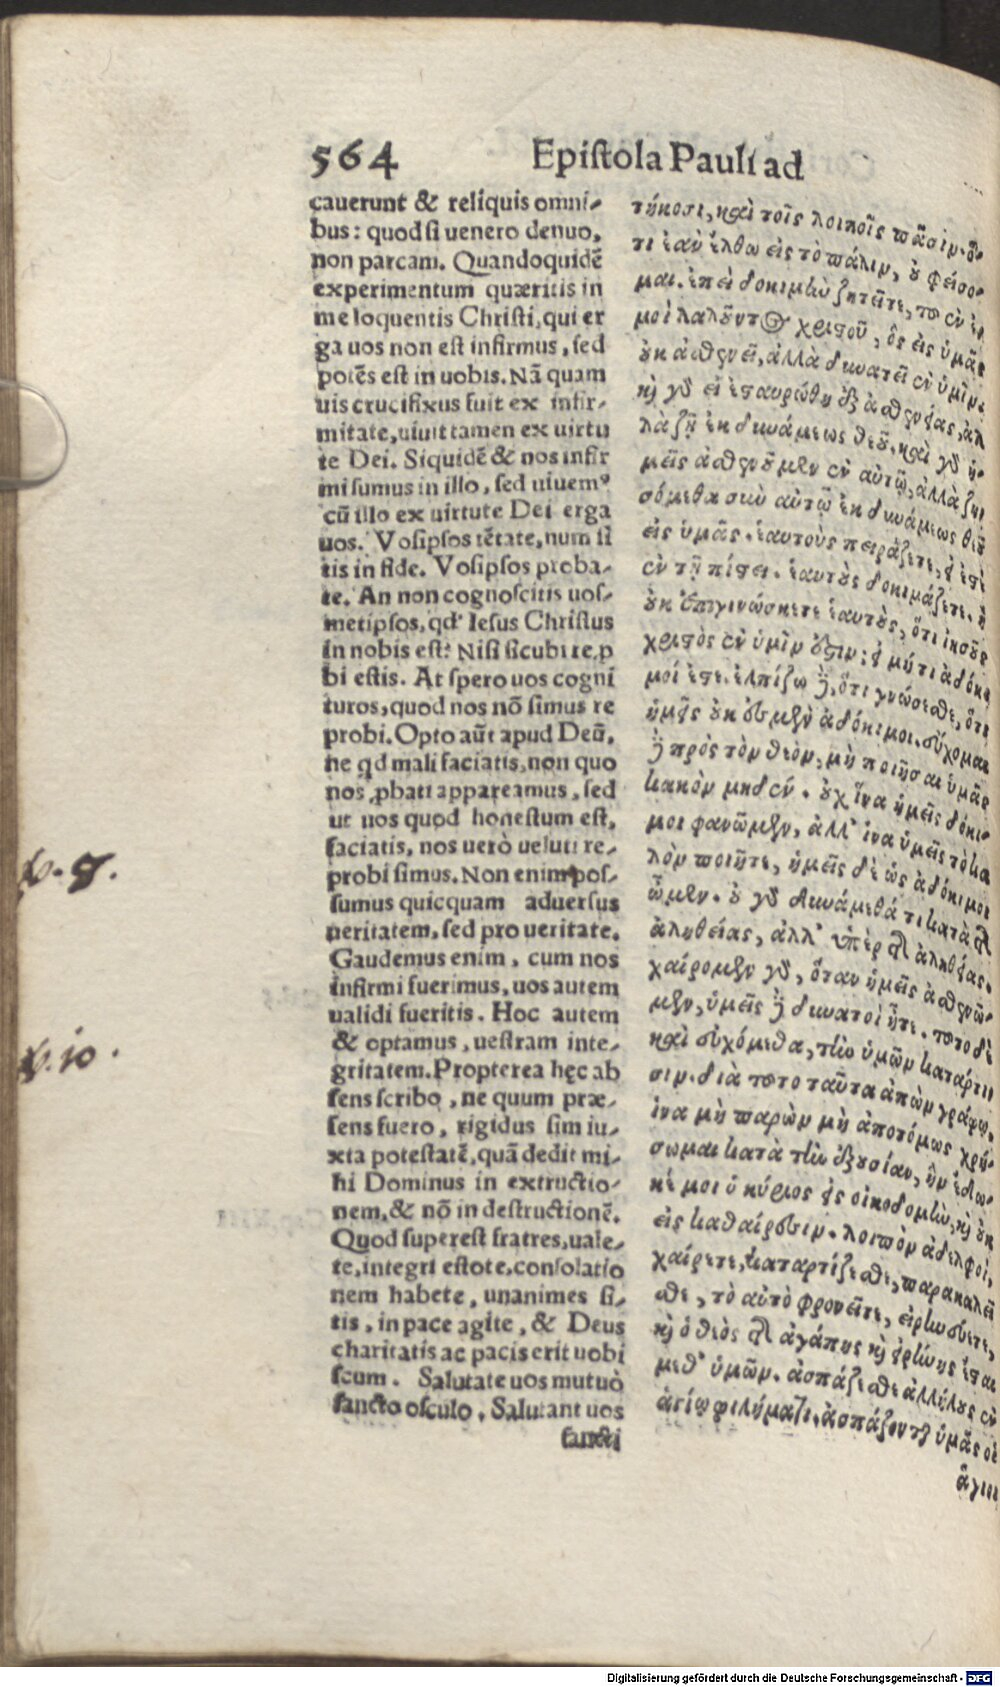 564 Epistola Pauli ad
cauerunt & reliquis omni-
bus: quod si uenero denuo,
non parcam. Quandoquidē
experimentum quæritis in
me loquentis Christi, qui er
ga uos non est infirmus, sed
potēs est in uobis. Nā quam
uis crucifixus fuit ex infir-
mitate, uiuit tamen ex uirtu
te Dei. Siquidē & nos infir
mi sumus in illo, sed uiuemꝰ
cū illo ex uirtute Dei erga
uos. Vosipsos tētate, num si
tis in fide. Vosipsos proba-
te. An non cognoscitis uos-
metipsos, qd' Iesus Christus
in nobis est? Nisi sicubi re,p
bi estis. At spero uos cogni
turos, quod nos nō simus re
probi. Opto aūt apud Deū,
ne qd mali faciatis, non quo
nos ,pbati appareamus, sed
ut uos quod honestum est,
faciatis, nos uerò ueluti re-
probi simus. Non enim pos-
sumus quicquam aduersus
ueritatem, sed pro ueritate.
Gaudemus enim, cum nos
infirmi fuerimus, uos autem
ualidi fueritis. Hoc autem
& optamus, uestram inte-
gritatem. Propterea hęc ab
sens scribo, ne quum præ-
sens fuero, rigidus sim iu-
xta potestatē, quā dedit mi-
hi Dominus in extructio-
nem, & nō in destructionē.
Quod superest fratres, uale-
te, integri estote, consolatio
nem habete, unanimes si-
tis, in pace agite, & Deus
charitatis ac pacis erit uobi
scum. Salutate uos mutuò
sancto osculo. Salutant uos
sancti
τήκοσι, καὶ τοῖς λοιποῖς πᾶσιν. ὅ-
τι ἐὰν ἔλθω εἰς τὸ πάλιν, ȣ φείσο-
μαι. ἐπεὶ δοκιμὴν ζητεῖτε, τȣ ἐν ἐ
μοὶ λαλοῦντος χριστοῦ, ὃς εἰς ὑμᾶς
ȣκ ἀσθενεῖ, ἀλλὰ δυνατεῖ ἐν ὑμῖν.
κỳ γὰρ εἰ ἐσταυρώθη ἐξ ἀσθενείας, ἀλ
λὰ ζῇ ἐκ δυνάμεως θεȣ. καὶ γὰρ ἡ-
μεῖς ἀσθενοῦμεν ἐν αὐτῷ, ἀλλὰ ζη
σόμεθα σὺν αὐτῷ ἐκ δυνάμεως θεȣ
εἰς ὑμᾶς. ἑαυτοὺς πειράζετε, εἰ ἐστὲ
ἐν τῇ πίστει. ἑαυτȣς δοκιμάζετε. ἢ
ȣκ ἐπιγινώσκετε ἑαυτȣς, ὅτι ἰησȣς
χριστὸς ἐν ὑμῖν ἐστιν; εἰ μή τι ἀδόκι
μοί ἐστε. ἐλπίζω δὲ, ὅτι γνώσεσθε, ὅτι
ἡμεῖς ȣκ ἐσμὲν ἀδόκιμοι. εὔχομαι
δὲ πρὸς τὸν θεὸν, μὴ ποιῆσαι ὑμᾶς
κακὸν μηδέν. ȣχ ἵνα ἡμεῖς δόκι-
μοι φανῶμεν, ἀλλ' ἵνα ὑμεῖς τὸ κα
λὸν ποιῆτε, ἡμεῖς δὲ ὡς ἀδόκιμοι
ὦμεν. ȣ γὰρ δυνάμεθά τι κατὰ τῆς
ἀληθείας, ἀλλ' ὑπὲρ τῆς ἀληθείας.
χαίρομεν γὰρ, ὅταν ἡμεῖς ἀσθενῶ-
μεν, ὑμεῖς δὲ δυνατοὶ ἦτε. τȣτο δὲ
καὶ εὐχόμεθα, τὴν ὑμῶν κατάρτι
σιν. διὰ τȣτο ταῦτα ἀπὼν γράφω,
ἵνα μὴ παρὼν μὴ ἀποτόμως χρή-
σωμαι κατὰ τὴν ἐξȣσίαν, ἣν ἔδω-
κέ μοι ὁ κύριος εἰς οἰκοδομὴν, κỳ ȣκ
εἰς καθαίρεσιν. λοιπὸν ἀδελφοὶ,
χαίρετε, καταρτίζεσθε, παρακαλεῖ
σθε, τὸ αὐτὸ φρονεῖτε, εἰρηνεύετε,
κỳ ὁ θεὸς τῆς ἀγάπης κỳ εἰρήνης ἔσται
μεθ' ὑμῶν. ἀσπάζεσθε ἀλλήλȣς ἐν
ἁγίῳ φιλήματι. ἀσπάζονται ὑμᾶς οἱ
ἅγιοι
8.
10.
Digitalisierung gefördert durch die Deutsche Forschungsgemeinschaft - DFG